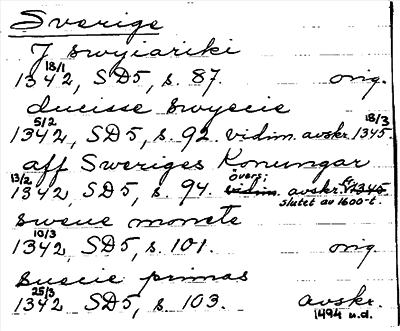 Sverige
J swyiariki
18/1
1342, SD5, s. 87. orig.
ducisse swecie
5/2 18/3
1342, SD5, s. 92. vidim. avskr. 1345.
aff Sweriges Konungar
13/2 övers:
1342, SD5, s. 94. vidim. avskr. 1345
slutet av 1600-t.
swene monete
10/3
1342, SD5, s. 101. orig.
suecie primas
25/3
1342 SD5, s. 103. avskr.
1494 u.d.